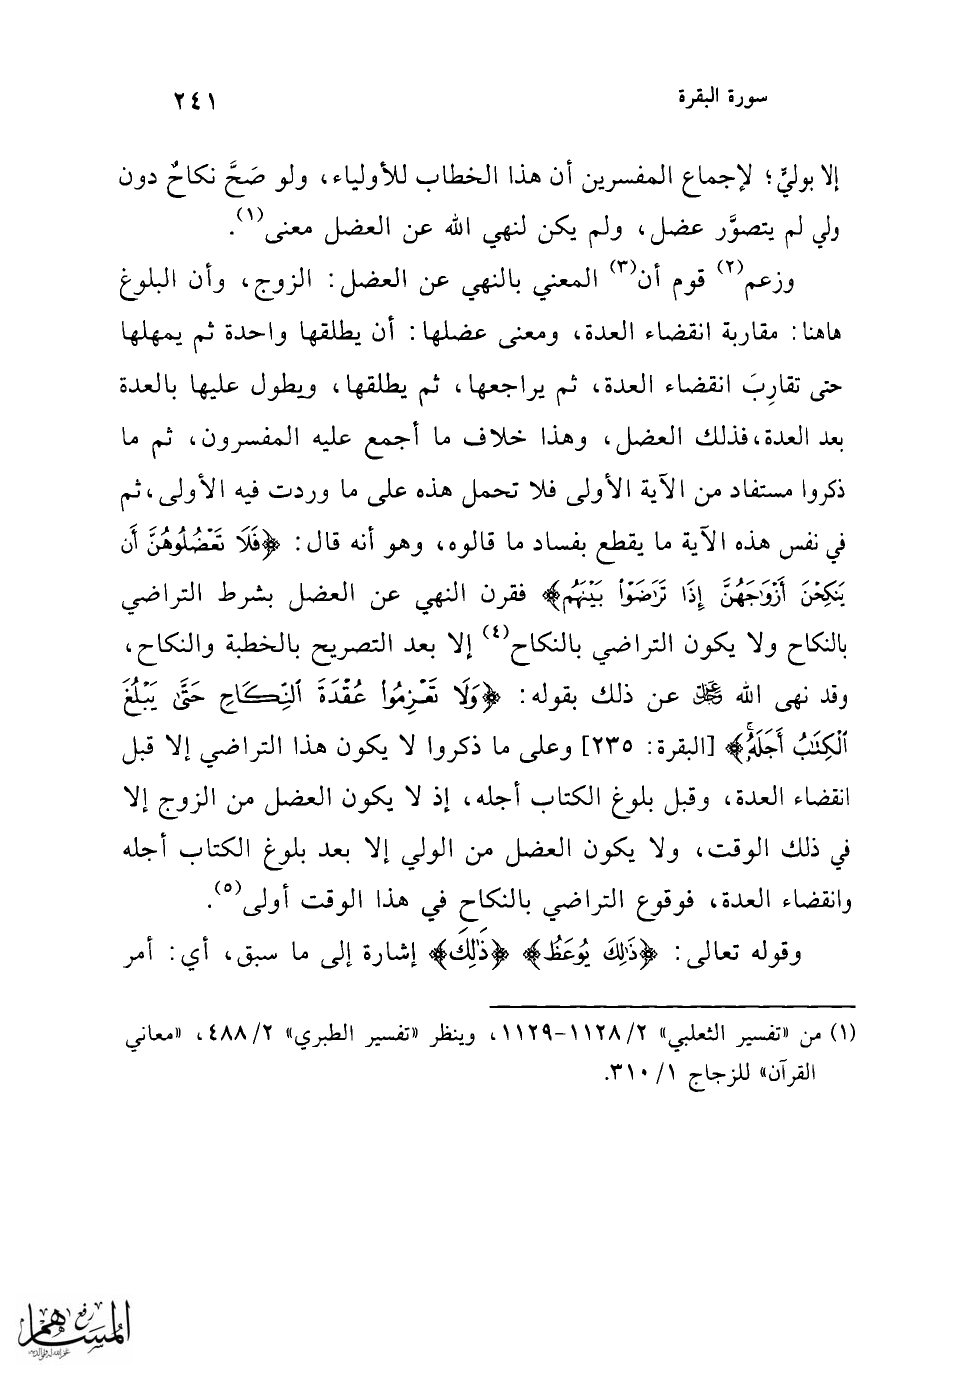 سورة البقرة ٢٤١
إلا بوليٍّ؛ لإجماع المفسرين أن هذا الخطاب للأولياء، ولو صَحَّ نكاحٌ دون
ولي لم يتصوَّر عضل، ولم يكن لنهي الله عن العضل معنى(١).
وزعم(٢) قوم أن(٣) المعني بالنهي عن العضل: الزوج، وأن البلوغ
هاهنا: مقاربة انقضاء العدة، ومعنى عضلها: أن يطلقها واحدة ثم يمهلها
حتى تقارِبَ انقضاء العدة، ثم يراجعها، ثم يطلقها، ويطول عليها بالعدة
بعد العدة،فذلك العضل، وهذا خلاف ما أجمع عليه المفسرون، ثم ما
ذكروا مستفاد من الآية الأولى فلا تحمل هذه على ما وردت فيه الأولى،ثم
في نفس هذه الآية ما يقطع بفساد ما قالوه، وهو أنه قال: ﴿فَلَا تَعْضُلُوهُنَّ أَن
يَنكِحْنَ أَزْوَٰجَهُنَّ إِذَا تَرَٰضَوْا۟ بَيْنَهُم﴾ فقرن النهي عن العضل بشرط التراضي
بالنكاح ولا يكون التراضي بالنكاح(٤) إلا بعد التصريح بالخطبة والنكاح،
وقد نهى الله ﷻ عن ذلك بقوله: ﴿وَلَا تَعْزِمُوا۟ عُقْدَةَ ٱلنِّكَاحِ حَتَّىٰ يَبْلُغَ
ٱلْكِتَٰبُ أَجَلَهُۥ﴾ [البقرة: ٢٣٥] وعلى ما ذكروا لا يكون هذا التراضي إلا قبل
انقضاء العدة، وقبل بلوغ الكتاب أجله، إذ لا يكون العضل من الزوج إلا
في ذلك الوقت، ولا يكون العضل من الولي إلا بعد بلوغ الكتاب أجله
وانقضاء العدة، فوقوع التراضي بالنكاح في هذا الوقت أولى(٥).
وقوله تعالى: ﴿ذَٰلِكَ يُوعَظُ﴾ ﴿ذَٰلِكَ﴾ إشارة إلى ما سبق، أي: أمر
(١) من «تفسير الثعلبي» ٢/ ١١٢٨-١١٢٩، وينظر «تفسير الطبري» ٢/ ٤٨٨، «معاني
القرآن» للزجاج ١/ ٣١٠.